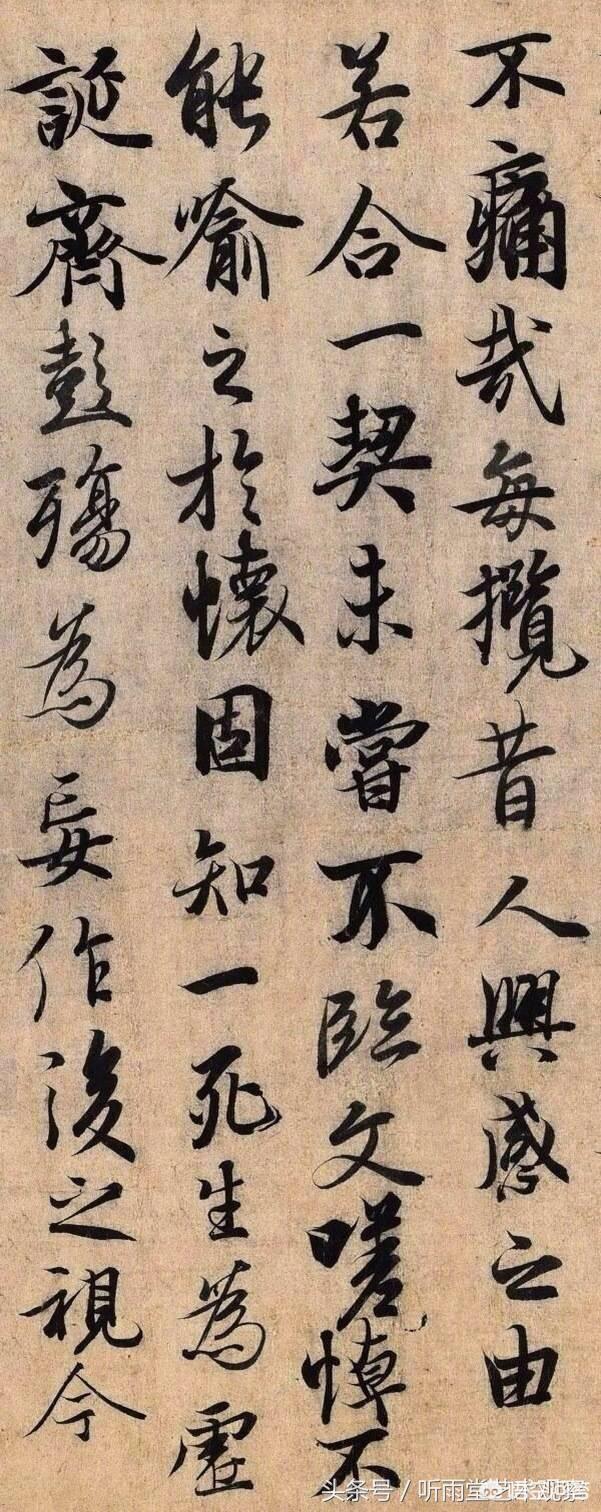 不痛哉每攬昔人興感之由
若合一契未嘗不臨文嗟悼不
能喻之於懷固知一死生為虛
誕齊彭殤為妄作後之視今
头条号/听雨堂艺术观察